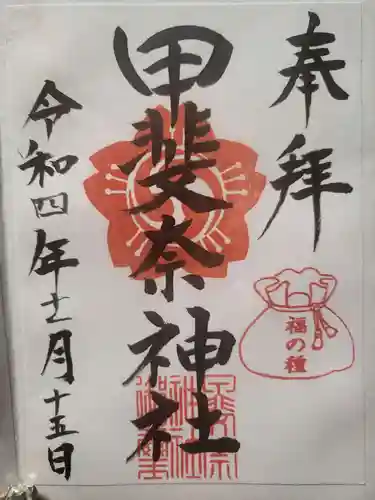 奉拝
甲斐奈神社
令和四年十二月十五日
福の種